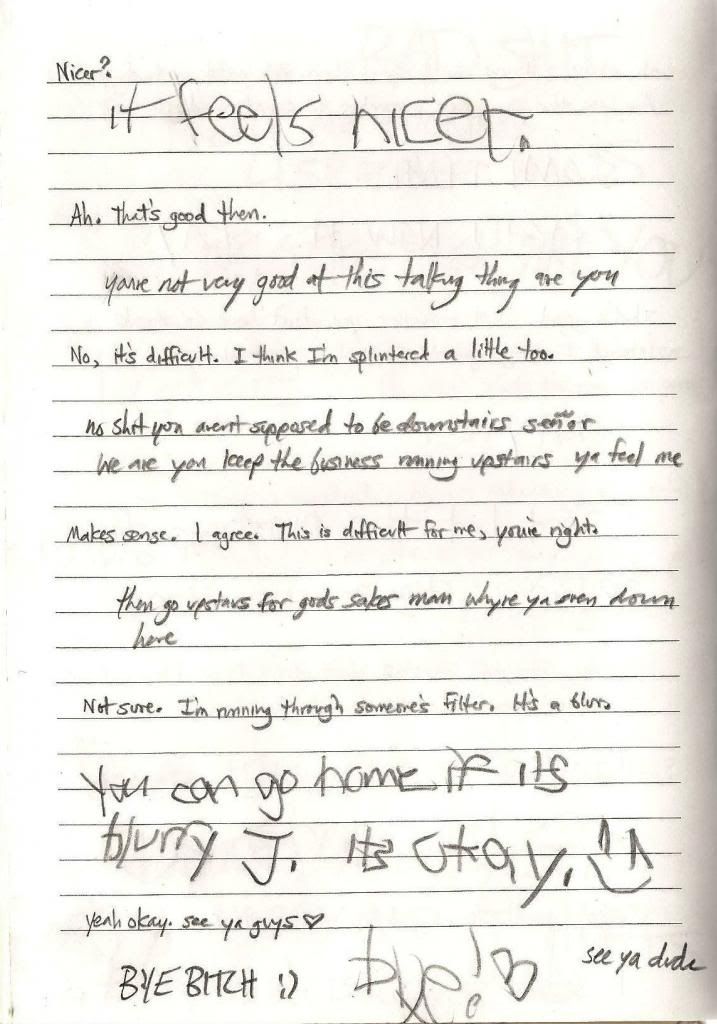 Nicer?
it feels nicer.
Ah. That's good then.
you're not very good at this talking thing are you
No, it's difficult. I think I'm splintered a little too.
no shit you aren't supposed to be downstairs señor
we are you keep the business running upstairs ya feel me
Makes sense. I agree. This is difficult for me, you're right.
then go upstairs for gods sakes man whyre ya even down
here
Not sure. I'm running through someone's filter. It's a blur.
You can go home if its
blurry J. its okay. :)
yeah okay. see ya guys ♡
bye! ♡
see ya dude
BYE BITCH :)